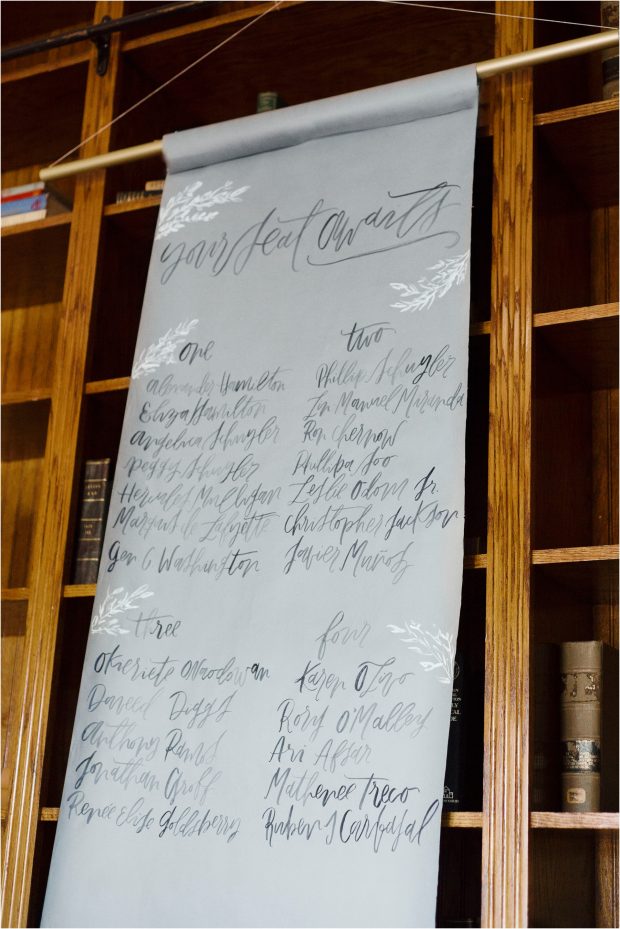 your seat awaits
one
Alexander Hamilton
Eliza Hamilton
Angelica Schuyler
Peggy Schuyler
Hercules Mulligan
Marquis de Lafayette
Gen G Washington
two
Phillip Schuyler
Lin Manuel Miranda
Ron Chernow
Phillipa Soo
Leslie Odom Jr.
Christopher Jackson
Javier Muñoz
three
Okieriete Onaodowan
Daveed Diggs
Anthony Ramos
Jonathan Groff
Renée Elise Goldsberry
four
Karen Olivo
Rory O'Malley
Ari Afsar
Mathenee Treco
Ruben J Carbajal